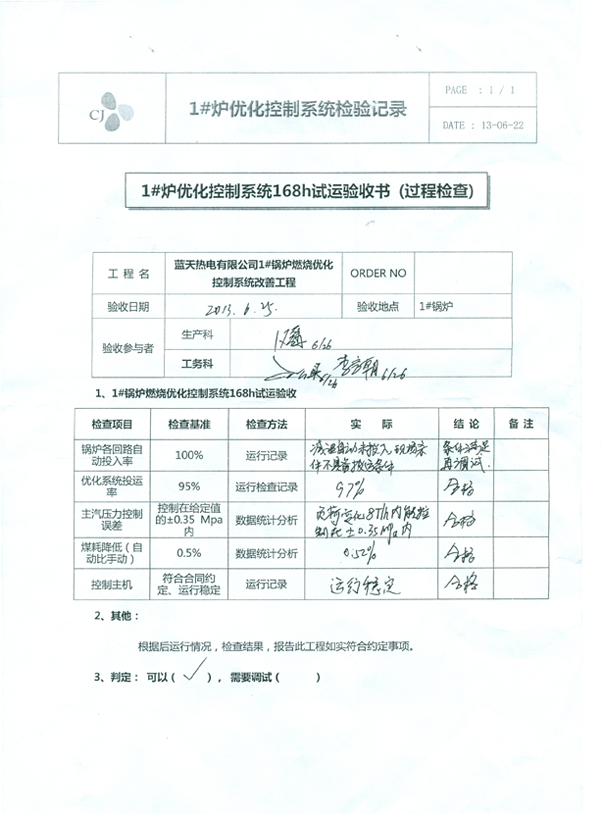 CJ
1#炉优化控制系统检验记录
PAGE : 1 / 1
DATE : 13-06-22
1#炉优化控制系统168h试运验收书（过程检查）
工 程 名
蓝天热电有限公司1#锅炉燃烧优化
控制系统改善工程
ORDER NO
验收日期
2013. 6. 25.
验收地点
1#锅炉
验收参与者
生产科
6/26
工务科
6/26
6/26
1、1#锅炉燃烧优化控制系统168h试运验收
检查项目 检查基准 检查方法 实 际 结 论 备 注
锅炉各回路自
动投入率
100%
运行记录
减温自动未投入 现场条
件不具备投运条件
条件满足
再调试.
优化系统投运
率
95%
运行检查记录
97%
合格
主汽压力控制
误差
控制在给定值
的±0.35 Mpa
内
数据统计分析
负荷变化8T/h内能控
制在±0.35Mpa内
合格
煤耗降低（自
动比手动）
0.5%
数据统计分析
0.52%
合格
控制主机
符合合同约
定、运行稳定
运行记录
运行稳定
合格
2、其他：
根据后运行情况，检查结果，报告此工程如实符合约定事项。
3、判定： 可以（ ✓ ）， 需要调试（ ）